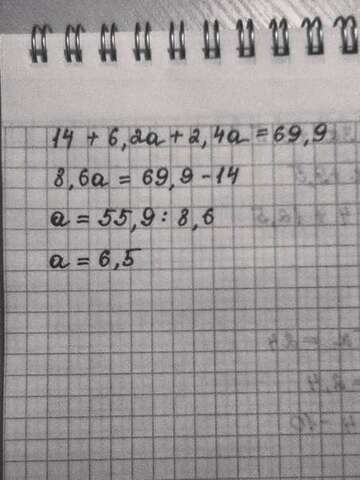 14 + 6,2a + 2,4a = 69,9
8,6a = 69,9 - 14
a = 55,9 : 8,6
a = 6,5